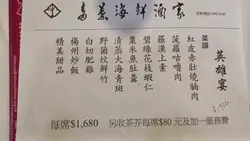 海鮮酒家
英雄宴
菜譜
紅皮赤壯燒腩肉
菠蘿咕嚕肉
羅漢上素
碧綠花枝蝦仁
粟米魚肚羹
清蒸大海青斑
野菌炆鮮竹
白切肥雞
楊州炒飯
精美甜品
每席$1,680 另收茶芥每席$80元及加一服務費